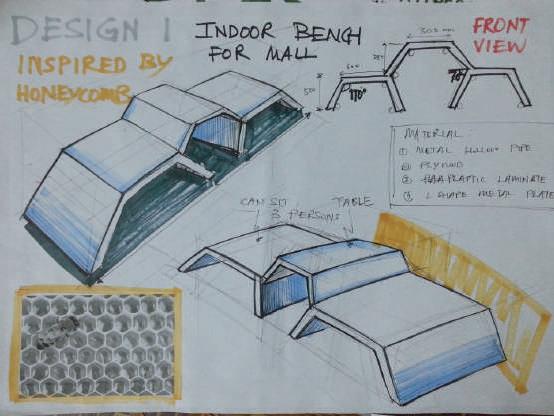 DESIGN 1
INDOOR BENCH
FOR MALL
INSPIRED BY
HONEYCOMB
FRONT
VIEW
MATERIAL:
① METAL HOLLOW PIPE
② PLYWOOD
③ PLASTIC LAMINATE
④ L SHAPE METAL PLATE
CAN SIT
3 PERSONS
TABLE